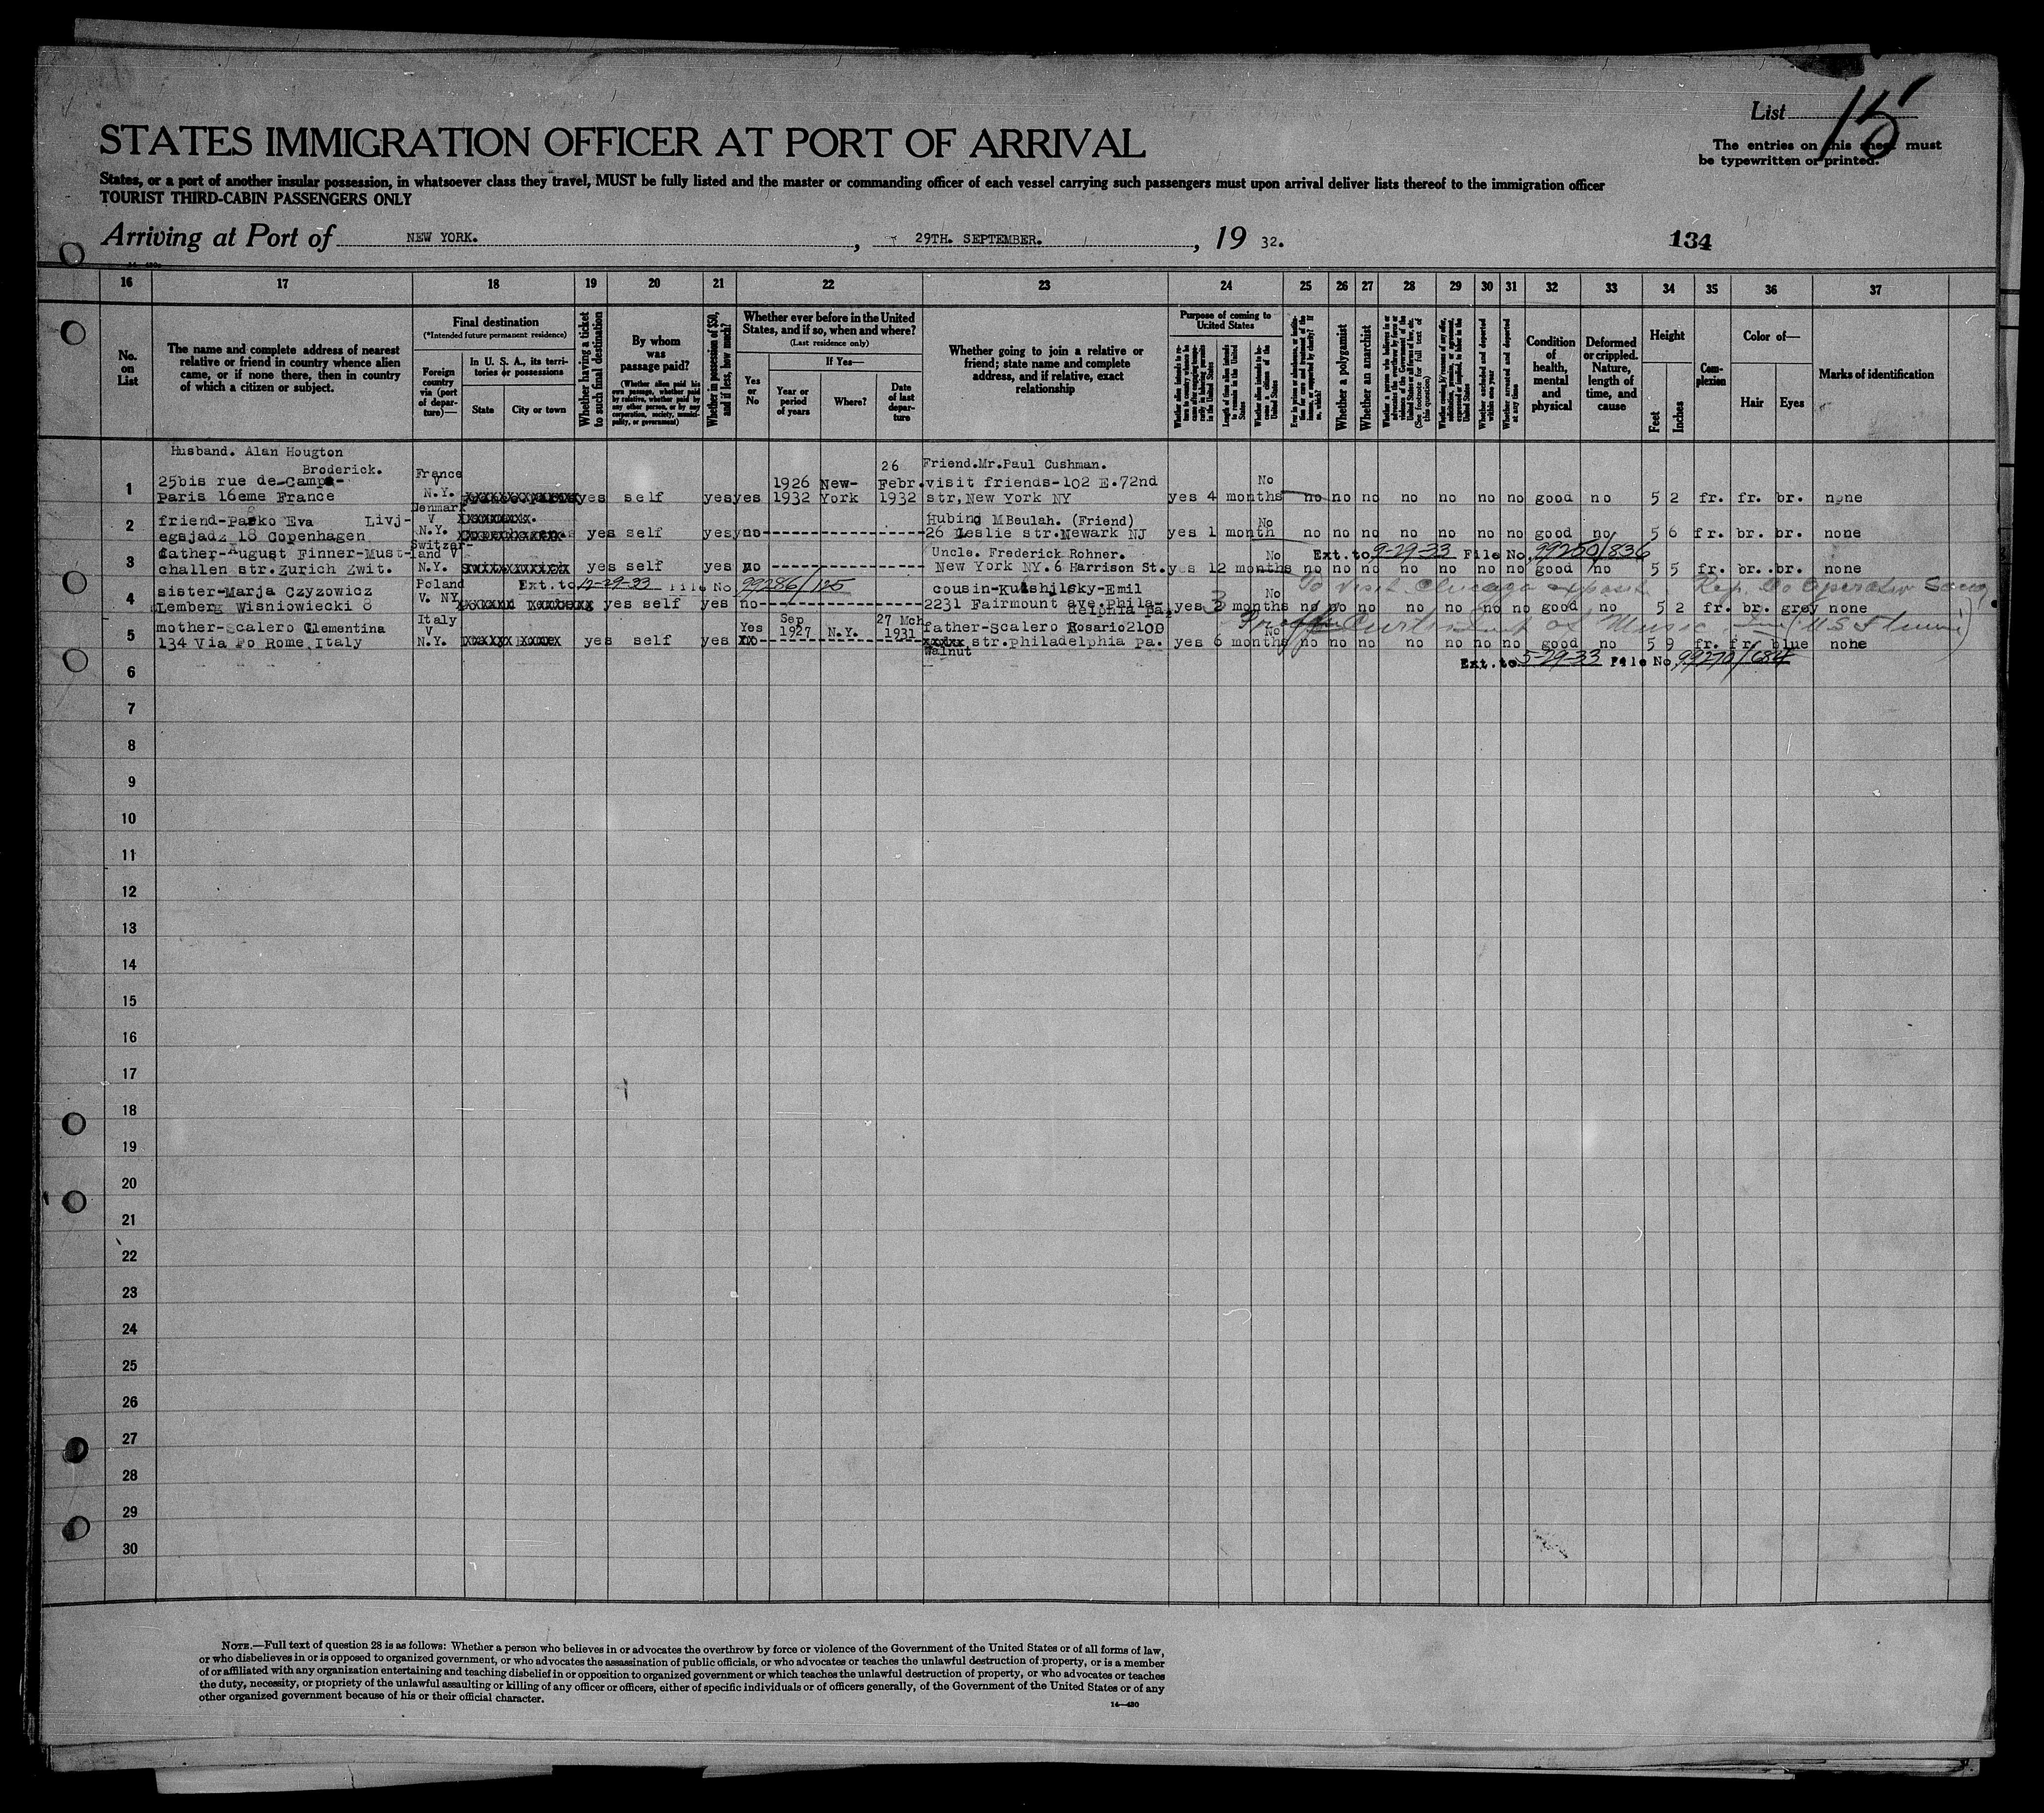 List 15
The entries on this sheet must
be typewritten or printed.
STATES IMMIGRATION OFFICER AT PORT OF ARRIVAL
States, or a port of another insular possession, in whatsoever class they travel, MUST be fully listed and the master or commanding officer of each vessel carrying such passengers must upon arrival deliver lists thereof to the immigration officer
TOURIST THIRD-CABIN PASSENGERS ONLY
Arriving at Port of NEW YORK. , 29TH. SEPTEMBER. , 19 32.
134
16 17 18 19 20 21 22 23 24 25 26 27 28 29 30 31 32 33 34 35 36 37
No. on List
The name and complete address of nearest
relative or friend in country whence alien
came, or if none there, then in country
of which a citizen or subject.
Final destination
(*Intended future permanent residence)
Foreign
country
via (port
of depar-
ture)—
In U. S. A., its terri-
tories or possessions
State
City or town
Whether having a ticket
to such final destination
By whom
was
passage paid?
(Whether alien paid his
own passage, whether paid
by relative, whether paid by
any other person, or by any
corporation, society, munici-
pality, or government)
Whether in possession of $50,
and if less, how much?
Whether ever before in the United
States, and if so, when and where?
(Last residence only)
Yes
or
No
If Yes—
Year or
period
of years
Where?
Date
of last
depar-
ture
Whether going to join a relative or
friend; state name and complete
address, and if relative, exact
relationship
Purpose of coming to
United States
Length of time alien intends
to remain in the United
States
Whether alien intends to be-
come a citizen of the
United States
Whether a polygamist
Whether an anarchist
(See footnote for full text of
this question)
Whether excluded and deported
within one year
Whether arrested and deported
at any time
Condition
of
health,
mental
and
physical
Deformed
or crippled.
Nature,
length of
time, and
cause
Height
Feet
Inches
Com-
plexion
Color of—
Hair
Eyes
Marks of identification
Husband. Alan Hougton
Broderick.
1 25bis rue de Campa-
Paris 16eme France
France
V
N.Y.
yes self yes yes 1926 1932 New-York 26 Febr. 1932
Friend.Mr.Paul Cushman.
visit friends-102 E.72nd
str,New York NY
yes 4 months No no no no no no no no good no 5 2 fr. fr. br. none
2 friend-Pasko Eva Livj-
egsjadz 18 Copenhagen
Denmark
V
N.Y.
yes self yes no
Hubing MBeulah. (Friend)
26 Leslie str.Newark NJ
yes 1 month No no no no no no no no good no 5 6 fr. br. br. none
3 father-August Finner-Must-
challen str.Zurich Zwit.
Switzer-
land V
N.Y.
yes self yes no
Uncle. Frederick Rohner.
New York NY.6 Harrison St.
Ext. to 9-29-33 File No. 99250/836
yes 12 months No no no no no no no no good no 5 5 fr. br. br. none
4 sister-Marja Czyzowicz
Lemberg Wisniowiecki 8
Poland
V. NY
Ext. to 12-29-33 File No 99286/125
yes self yes no
cousin-Kulshilsky-Emil
2231 Fairmount ave.Phila-
delphia Pa.
To visit Chicago exposit. Rep. Co Operative
yes 3 months No no no no no no no no good no 5 2 fr. br. grey none
5 mother-Scalero Clementina
134 Via Po Rome Italy
Italy
V
N.Y.
yes self yes Yes Sep 1927 N.Y. 27 Mch 1931
father-Scalero Rosario2100
str.philadelphia pa.
Walnut
of Music
yes 6 months No no no no no no no no good no 5 9 fr. fr. blue none
Ext. to 5-29-33 File No. 99270/684
6
7
8
9
10
11
12
13
14
15
16
17
18
19
20
21
22
23
24
25
26
27
28
29
30
NOTE.—Full text of question 28 is as follows: Whether a person who believes in or advocates the overthrow by force or violence of the Government of the United States or of all forms of law,
or who disbelieves in or is opposed to organized government, or who advocates the assassination of public officials, or who advocates or teaches the unlawful destruction of property, or is a member
of or affiliated with any organization entertaining and teaching disbelief in or opposition to organized government or which teaches the unlawful destruction of property, or who advocates or teaches
the duty, necessity, or propriety of the unlawful assaulting or killing of any officer or officers, either of specific individuals or of officers generally, of the Government of the United States or of any
other organized government because of his or their official character.
14—430